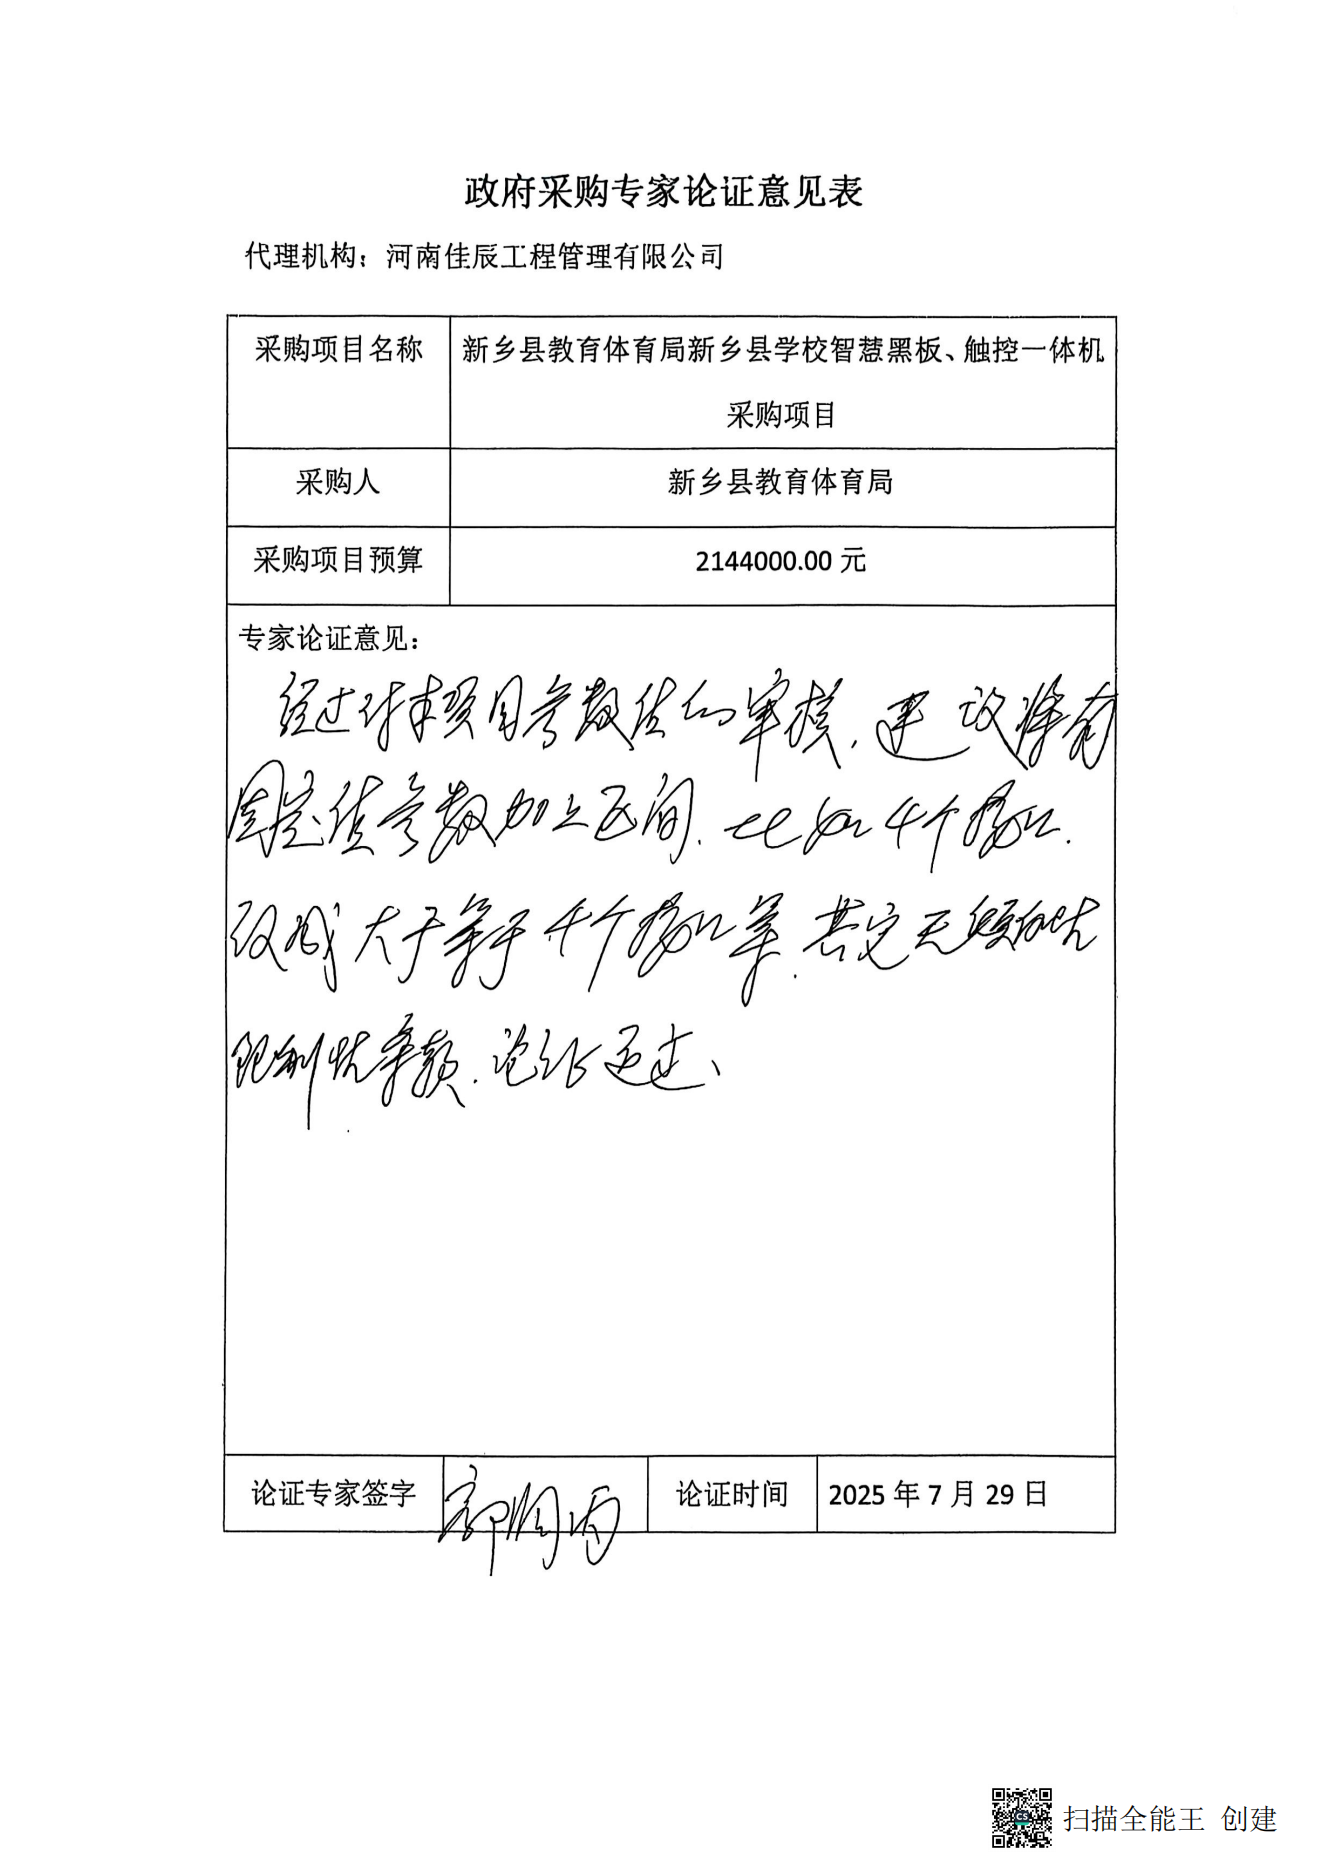 政府采购专家论证意见表
代理机构：河南佳辰工程管理有限公司
采购项目名称
新乡县教育体育局新乡县学校智慧黑板、触控一体机
采购项目
采购人
新乡县教育体育局
采购项目预算
2144000.00 元
专家论证意见：
经过对本项目参数值的审核，建议将有
固定值参数加上区间，比如4个接口，
改成大于等于4个接口等，其它无倾向性
限制性条款，论证通过、
论证专家签字
郭
论证时间
2025 年 7 月 29 日
扫描全能王 创建